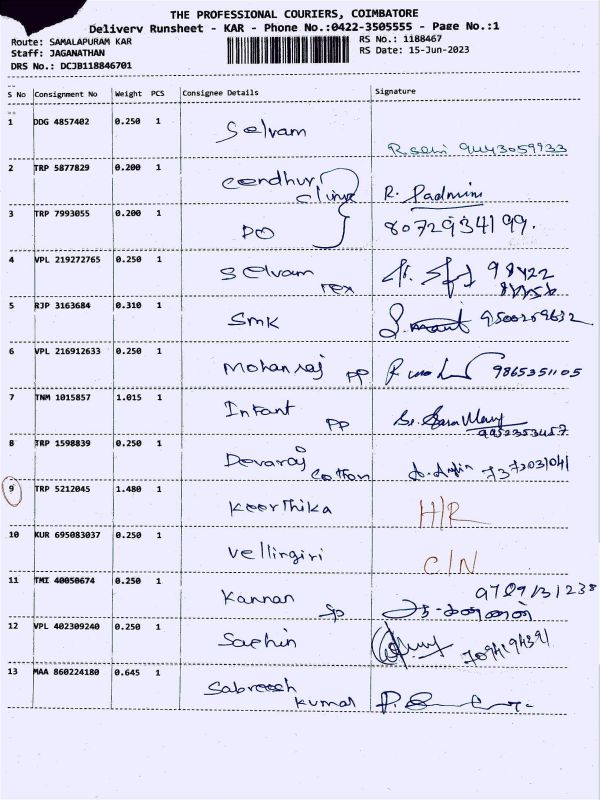 THE PROFESSIONAL COURIERS, COIMBATORE
Delivery Runsheet - KAR - Phone No.:0422-3505555 - Page No.:1
Route: SAMALAPURAM KAR
RS No.: 1188467
Staff: JAGANATHAN
RS Date: 15-Jun-2023
DRS No.: DCJB118846701
S No Consignment No Weight PCS Consignee Details Signature
1 DDG 4857402 0.250 1 Selvam
9443059933
2 TRP 5877829 0.200 1 clinic R. Padmini
3 TRP 7993055 0.200 1 DO 8072934199.
4 VPL 219272765 0.250 1 Selvam Tex 98422
5 RJP 3163684 0.310 1 SMK 9500269632
6 VPL 216912633 0.250 1 Mohanraj PP 9865351105
7 TNM 1015857 1.015 1 Infant PP
9952353457
8 TRP 1598839 0.250 1 Devaraj cotton
9 TRP 5212045 1.480 1 Keerthika H/R
10 KUR 695083037 0.250 1 Vellingiri C/N
11 TMI 40050674 0.250 1 Kannan SP 9789131238
12 VPL 402309240 0.250 1 Sachin
13 MAA 860224180 0.645 1 Sabreesh kumar